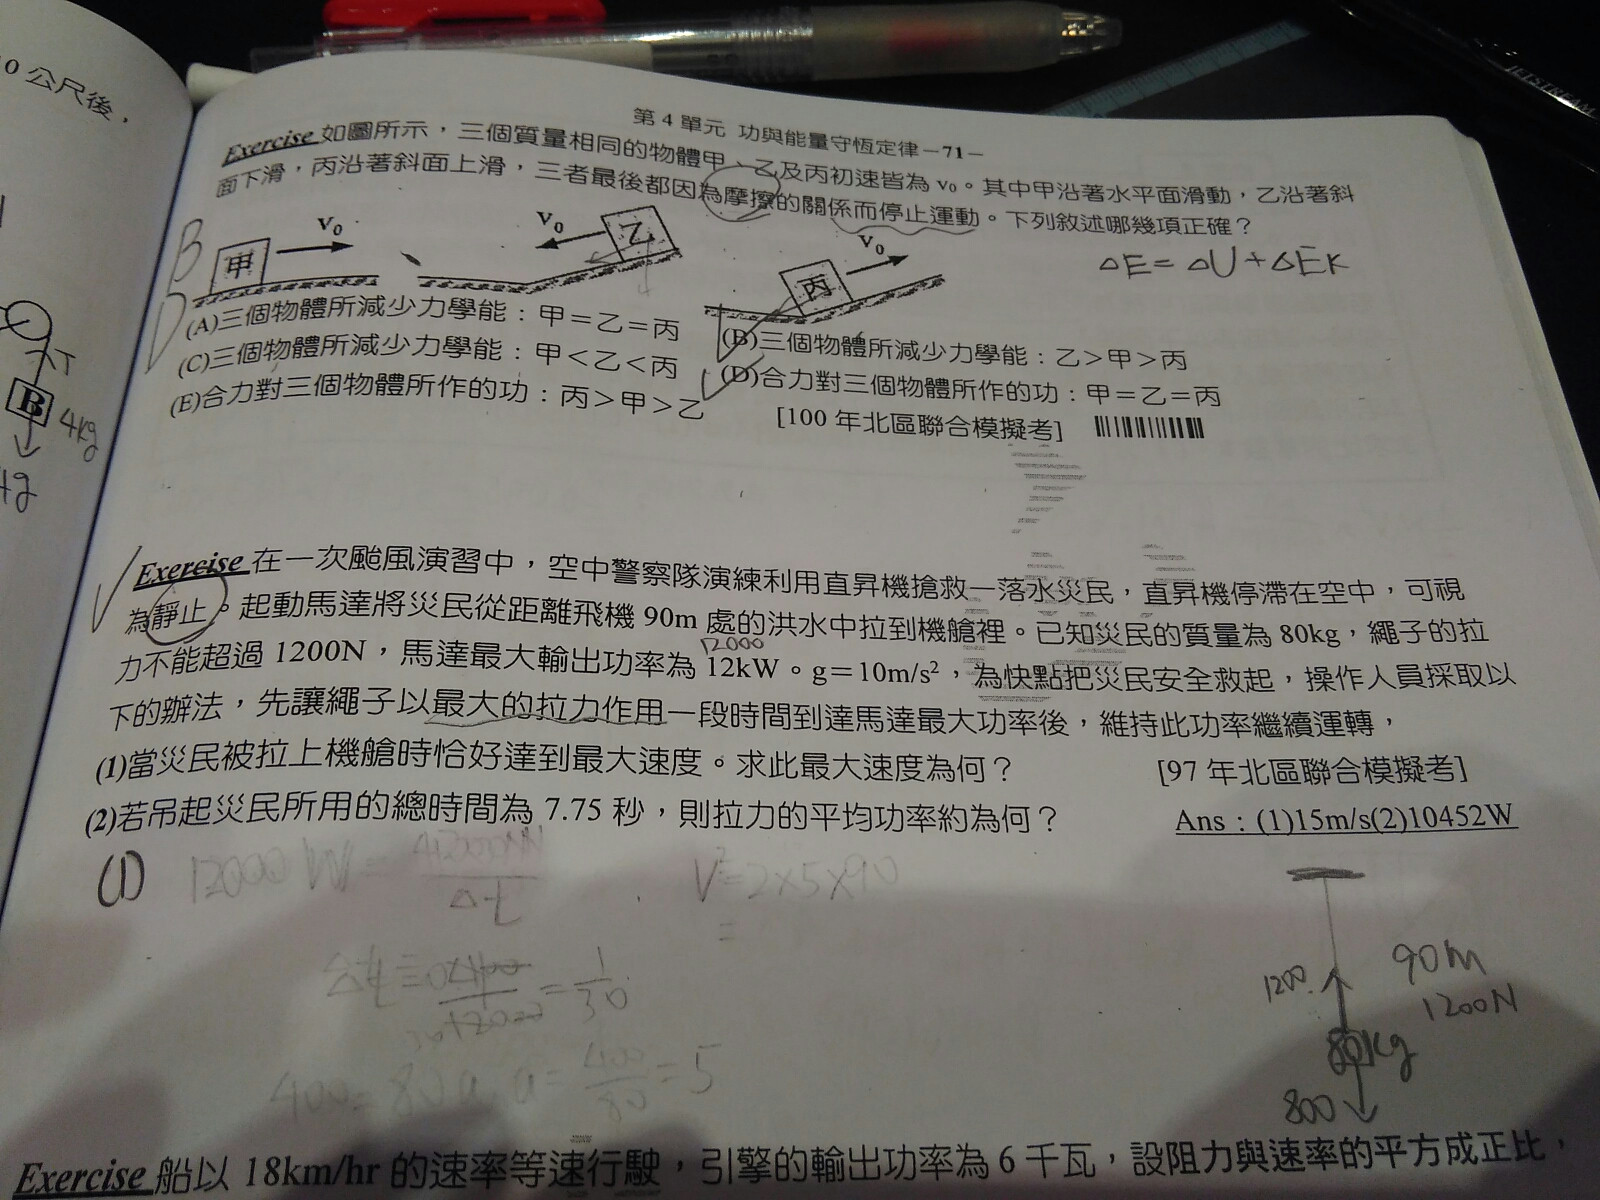 10 公尺後，
第 4 單元 功與能量守恆定律－71－
Exercise 如圖所示，三個質量相同的物體甲、乙及丙初速皆為 v₀。其中甲沿著水平面滑動，乙沿著斜
面下滑，丙沿著斜面上滑，三者最後都因為摩擦的關係而停止運動。下列敘述哪幾項正確？
B
D
甲 v₀
v₀ 乙
丙 v₀
ΔE = ΔU + ΔEK
(A)三個物體所減少力學能：甲＝乙＝丙
(B)三個物體所減少力學能：乙＞甲＞丙
(C)三個物體所減少力學能：甲＜乙＜丙
(D)合力對三個物體所作的功：甲＝乙＝丙
(E)合力對三個物體所作的功：丙＞甲＞乙
[100 年北區聯合模擬考]
T
B
4kg
4g
Exercise 在一次颱風演習中，空中警察隊演練利用直昇機搶救一落水災民，直昇機停滯在空中，可視
為靜止。起動馬達將災民從距離飛機 90m 處的洪水中拉到機艙裡。已知災民的質量為 80kg，繩子的拉
12000
力不能超過 1200N，馬達最大輸出功率為 12kW。g＝10m/s²，為快點把災民安全救起，操作人員採取以
下的辦法，先讓繩子以最大的拉力作用一段時間到達馬達最大功率後，維持此功率繼續運轉，
(1)當災民被拉上機艙時恰好達到最大速度。求此最大速度為何？
[97 年北區聯合模擬考]
(2)若吊起災民所用的總時間為 7.75 秒，則拉力的平均功率約為何？
Ans：(1)15m/s(2)10452W
(1)
12000 W =
Δt
V² = 2×5×90
=
= 1/30
400 = 80a, a = 400/80 = 5
1200
90m
1200N
80kg
800
Exercise 船以 18km/hr 的速率等速行駛，引擎的輸出功率為 6 千瓦，設阻力與速率的平方成正比，
JETSTREAM